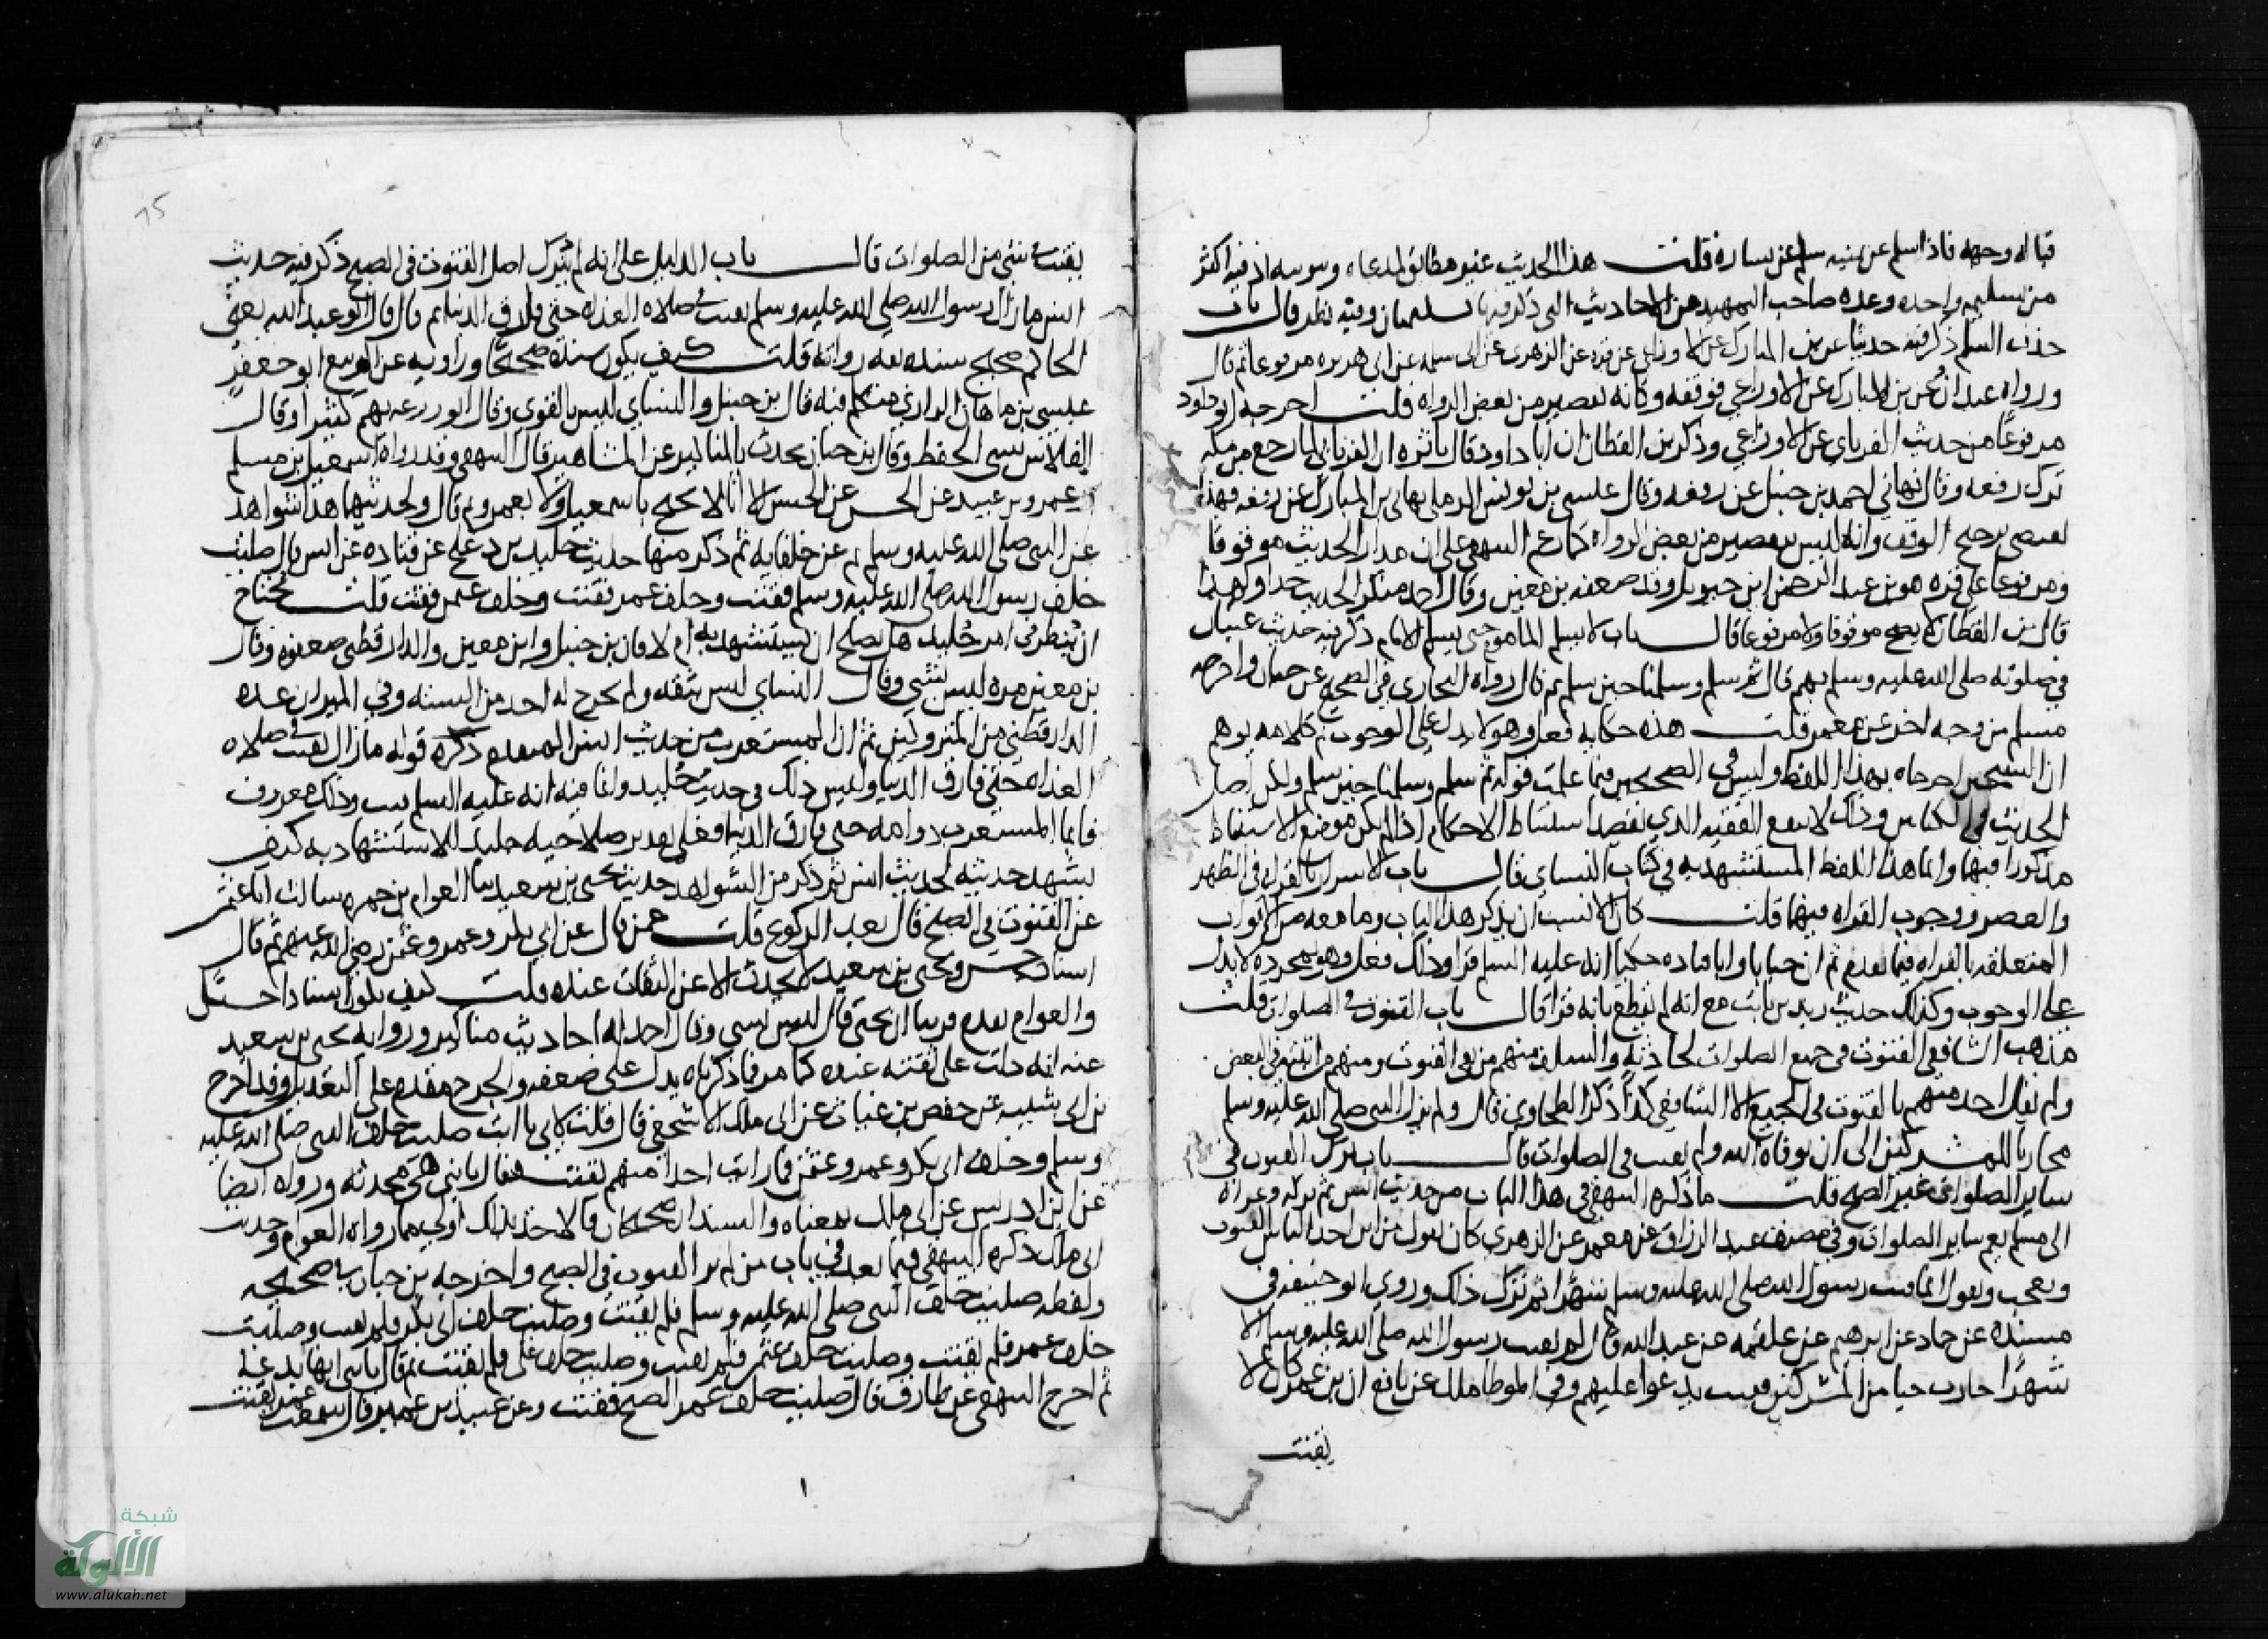 قباله وجهه فاذا سلم عن يمينه سلم عن يساره قلت هذا الحديث غير مطابق لمدعاه وبوبه اذ فيه اكثر
من تسليمه واحده وعده صاحب التمهيد من الاحاديث التي ذكر فيها تسليمتان وفيه نظر قال باب
حذف السلام ذكر فيه حديثا عن بن المبارك عن الاوزاعي عن قره عن الزهري عن ابي سلمه عن ابي هريره مرفوعا ثم قال
ورواه عبدان عن بن المبارك عن الاوزاعي فوقفه وكانه تقصير من بعض الرواه قلت اخرجه ابو داود
مرفوعا من حديث الفريابي عن الاوزاعي وذكر بن القطان ان ابا داود قال باثره ان الفريابي لما رجع من مكه
ترك رفعه وقال نهاني احمد بن حنبل عن رفعه وقال عيسى بن يونس الرملي نهاني بن المبارك عن رفعه فهذا
يقتضي ترجيح الوقف وانه ليس بتقصير من بعض الرواه كما زعم البيهقي على ان مدار الحديث موقوفا
ومرفوعا على قره هو بن عبد الرحمن ابن حيويل وقد ضعفه بن معين وقال احمد منكر الحديث جدا ولهذا
قال بن القطان لا يصح موقوفا ولا مرفوعا قال باب لا يسلم الماموم حتى يسلم الامام ذكر فيه حديث عتبان
في صلوته صلى الله عليه وسلم بهم قال ثم سلم وسلمنا حين سلم ثم قال رواه البخاري في الصحيح عن حبان واخرجه
مسلم من وجه اخر عن معمر قلت هذه حكايه فعل وهو لا يدل على الوجوب ثم كلامه يوهم
ان الشيخين اخرجاه بهذا اللفظ وليس في الصحيحين فيما علمت قوله ثم سلم وسلمنا حين سلم ولكن اصل
الحديث في الكتابين وذلك لا ينفع الفقيه الذي يقصد استنباط الاحكام اذا لم يكن موضع الاستنباط
مذكورا فيهما وانما هذا اللفظ المستشهد به في كتاب النساي قال باب الاسرار بالقراه في الظهر
والعصر ووجوب القراه فيهما قلت كان الانسب ان يذكر هذا الباب وما معه من الابواب
المتعلقه بالقراه فيما تقدم ثم ان خبابا وابا قتاده حكيا انه عليه السلم قرا وذلك فعل وهو بمجرده لا يدل
على الوجوب وكذلك حديث زيد بن ثابت مع انه لم يقطع بانه قرا قال باب القنوت في الصلوات قلت
مذهب الشافعي القنوت في جميع الصلوات لحادثه والسلف منهم من نفى القنوت ومنهم من اثبته في البعض
ولم يقل احد منهم بالقنوت في الجميع الا الشافعي كذا ذكر الطحاوي قال ولم يزل النبي صلى الله عليه وسلم
محاربا للمشركين الى ان توفاه الله ولم يقنت في الصلوات قال باب ترك القنوت في
ساير الصلوات غير الصبح قلت ما ذكره البيهقي في هذا الباب من حديث انس ثم تركه وعزاه
الى مسلم يعم ساير الصلوات وفي مصنف عبد الرزاق عن معمر عن الزهري كان يقول من اين اخذ الناس القنوت
وتعجب ويقول انما قنت رسول الله صلى الله عليه وسلم شهرا ثم ترك ذلك وروى ابو حنيفه في
مسنده عن حماد عن ابرهيم عن علقمه عن عبد الله قال لم يقنت رسول الله صلى الله عليه وسلم الا
شهرا حارب حيا من المشركين فقنت يدعوا عليهم وفي الموطا ملك عن نافع ان بن عمر كان لا
يقنت
يقنت في شي من الصلوات قال باب الدليل على انه لم يترك اصل القنوت في الصبح ذكر فيه حديث
انس ما زال رسول الله صلى الله عليه وسلم يقنت في صلاه الغداه حتى فارق الدنيا ثم قال قال ابو عبد الله يعني
الحاكم صحيح سنده ثقه رواته قلت كيف يكون سنده صحيحا وراويه عن الربيع ابو جعفر
عيسى بن ماهان الرازي متكلم فيه قال بن حنبل والنساي ليس بالقوي وقال ابو زرعه يهم كثيرا وقال
الفلاس سي الحفظ وقال بن حبان يحدث بالمناكير عن المشاهير قال البيهقي وقد رواه اسمعيل بن مسلم
وعمرو بن عبيد عن الحسن عن انس الا انا لا نحتج باسمعيل ولا بعمرو ثم قال ولحديثهما هذا شواهد
عن النبي صلى الله عليه وسلم ثم عن خلفايه ثم ذكر منها حديث خليد بن دعلج عن قتاده عن انس قال صليت
خلف رسول الله صلى الله عليه وسلم فقنت وخلف عمر فقنت وخلف عثمن فقنت قلت يحتاج
ان ينظر في امر خليد هل يصلح ان يستشهد به ام لا فان بن حنبل وابن معين والدارقطني ضعفوه وقال
بن معين مره ليس بشي وقال النساي ليس بثقه ولم يخرج له احد من السته وفي الميزان عده
الدارقطني من المتروكين ثم ان المستغرب من حديث انس المتقدم ذكره قوله ما زال يقنت في صلاه
الغداه حتى فارق الدنيا وليس ذلك في حديث خليد وانما فيه انه عليه السلم قنت وذلك معروف
وانما المستغرب دوامه حتى فارق الدنيا فعلى تقدير صلاحيه خليد للاستشهاد به كيف
يشهد حديثه لحديث انس ثم ذكر من الشواهد حديث يحيى بن سعيد ثنا العوام بن حمزه سالت ابا عثمن
عن القنوت في الصبح قال بعد الركوع قلت عمن قال عن ابي بكر وعمر وعثمن رضي الله عنهم ثم قال
اسناد حسن ويحيى بن سعيد لا يحدث الا عن الثقات عنده قلت كيف يكون اسنادا حسنا بل
والعوام تقدم قريبا ان يحيى قال ليس بشي وقال احمد له احاديث مناكير ورواية يحيى بن سعيد
عنه انه دلت على ثقته عنده كما مر فما ذكرناه يدل على ضعفه والجرح مقدم على التعديل وقد اخرج
بن ابي شيبه عن حفص بن غياث عن ابي ملك الاشجعي قال قلت لابي يا ابت صليت خلف النبي صلى الله عليه
وسلم وخلف ابي بكر وعمر وعثمن فما رايت احدا منهم يقنت فقال يا بني هي محدثه ورواه ايضا
عن ابن ادريس عن ابي ملك بمعناه والسندان صحيحان فالاخذ بذلك اولى مما رواه العوام وحديث
ابي ملك ذكره البيهقي فيما بعد في باب من لم ير القنوت في الصبح واخرجه بن حبان في صحيحه
ولفظه صليت خلف النبي صلى الله عليه وسلم فلم يقنت وصليت خلف ابي بكر فلم يقنت وصليت
خلف عمر فلم يقنت وصليت خلف عثمن فلم يقنت وصليت خلف علي فلم يقنت ثم قال يا بني انها بدعه
ثم اخرج البيهقي عن طارق قال صليت خلف عمر الصبح فقنت وعن عبيد بن عمير قال سمعت عمر يقنت
شبكة
الألوكة
www.alukah.net